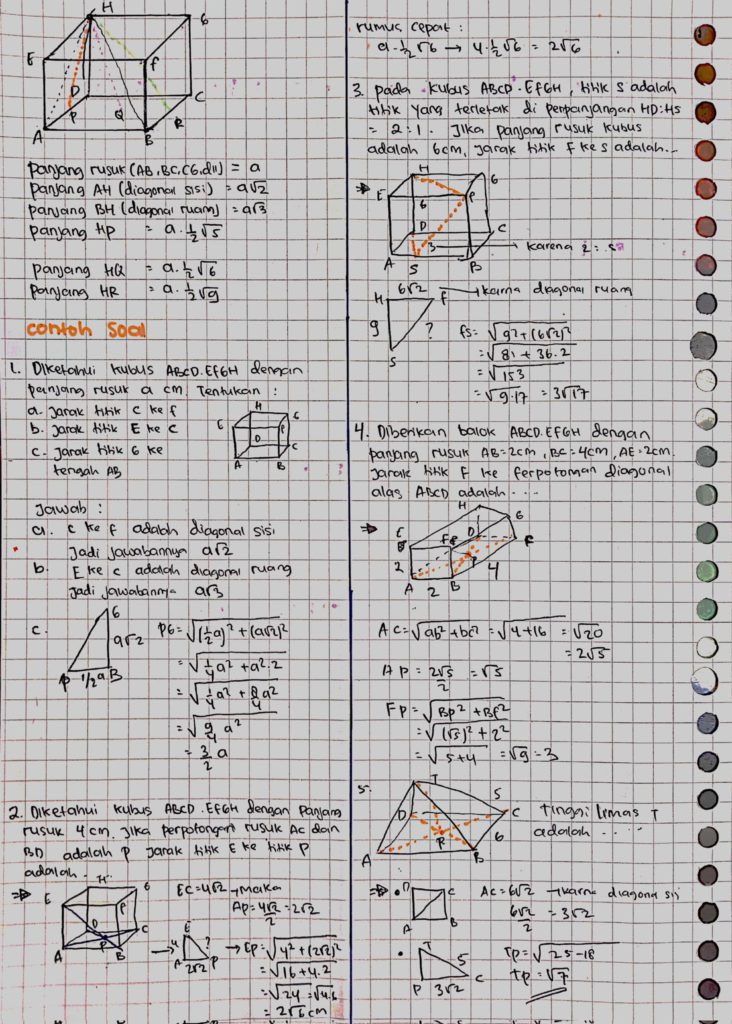 H
G
E
F
D
C
P
Q
A
B
R
panjang rusuk (AB, BC, CG, dll) = a
panjang AH (diagonal sisi) = a√2
panjang BH (diagonal ruam) = a√3
panjang HP = a.½√5
panjang HQ = a.½√6
panjang HR = a.½√9
contoh Soal
1. Diketahui kubus ABCD.EFGH dengan
panjang rusuk a cm. Tentukan :
a. Jarak titik C ke F
b. Jarak titik E ke C
c. Jarak titik G ke
tengah AB
H
G
E
P
D
C
A
B
Jawab :
a. C ke F adalah diagonal sisi
Jadi jawabannya a√2
b. E ke C adalah diagonal ruang
Jadi jawabannya a√3
c.
G
a√2
P 1/2 a B
PG = √(½a)² + (a√2)²
= √¼a² + a².2
= √¼a² + 8/4 a²
= √9/4 a²
= 3/2 a
2. Diketahui kubus ABCD.EFGH dengan panjang
rusuk 4 cm. Jika perpotongan rusuk AC dan
BD adalah P Jarak titik E ke titik P
adalah..
H
G
E
P
D
C
A
P
B
EC = 4√2 → maka
AP = 4√2/2 = 2√2
E
4
?
A 2√2 P
→ EP = √4² + (2√2)²
= √16 + 4.2
= √24 = √4.6
= 2√6 cm
rumus cepat :
a.½√6 → 4.½√6 = 2√6
3. pada kubus ABCD.EFGH, titik S adalah
titik yang terletak di perpanjangan HD:HS
= 2:1. Jika panjang rusuk kubus
adalah 6cm, jarak titik F ke S adalah...
H
G
E
P
6
D
C
3 → karena 2 : S
A
S
B
6√2
H F → karna diagonal ruang
9
?
S
FS = √9² + (6√2)²
= √81 + 36.2
= √153
= √9.17 = 3√17
4. Diberikan balok ABCD.EFGH dengan
panjang rusuk AB = 2cm, BC = 4cm, AE = 2cm.
Jarak titik F ke perpotongan diagonal
alas ABCD adalah ....
E
F
D
G
2
P
4
A
B
2
AC = √ab² + bc² = √4+16 = √20
= 2√5
AP = 2√5/2 = √5
FP = √BP² + BF²
= √(√5)² + 2²
= √5+4 = √9 = 3
5.
T
5
D
C
P
6
A
B
Tinggi limas T
adalah .....
D
C
A
B
AC = 6√2 → karna diagonal sisi
6√2/2 = 3√2
T
5
P 3√2 C
TP = √25-18
TP = √7